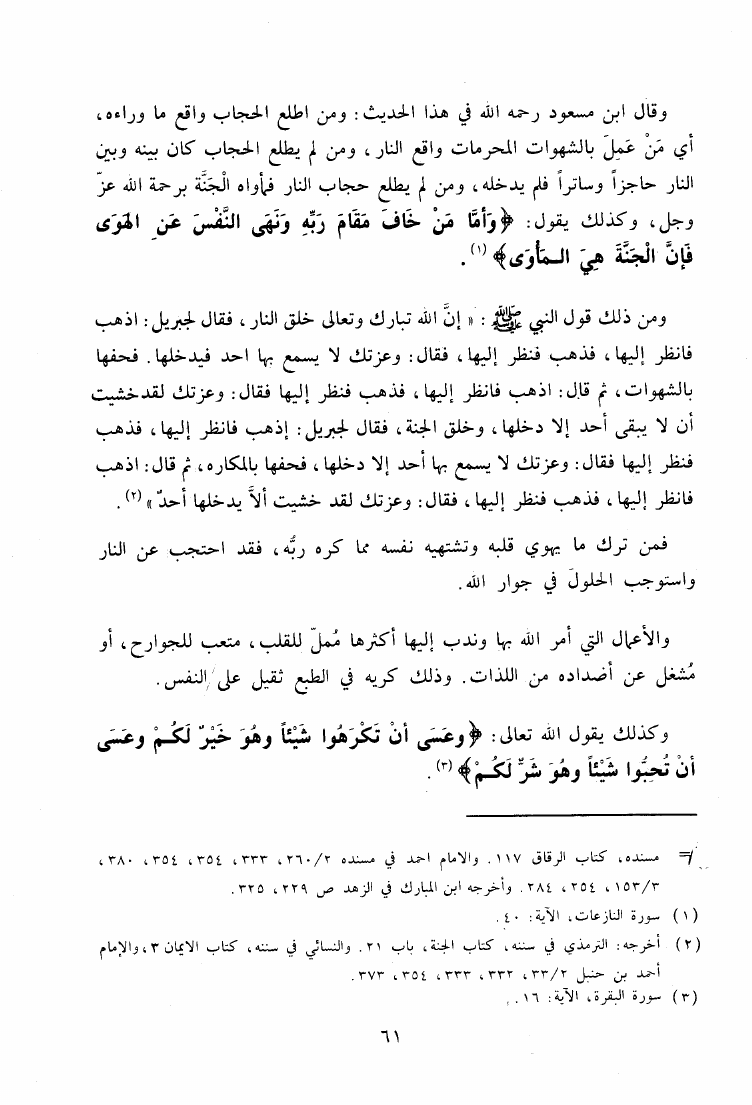 وقال ابن مسعود رحمه الله في هذا الحديث: ومن اطلع الحجاب واقع ما وراءه،
أي مَنْ عَمِلَ بالشهوات المحرمات واقع النار، ومن لم يطلع الحجاب كان بينه وبين
النار حاجزاً وساتراً فلم يدخله، ومن لم يطلع حجاب النار فأواه الْجَنَّة برحمة الله عزّ
وجل، وكذلك يقول: ﴿وَأمَّا مَنْ خَافَ مَقَامَ رَبِّهِ وَنَهَى النَّفْسَ عَنِ الهَوَى
فَإنَّ الْجَنَّةَ هِيَ الـمَأوَى﴾ (١).
ومن ذلك قول النبي ﷺ: « إنَّ الله تبارك وتعالى خلق النار، فقال لجبريل: اذهب
فانظر إليها، فذهب فنظر إليها، فقال: وعزتك لا يسمع بها احد فيدخلها. فحفها
بالشهوات، ثم قال: اذهب فانظر إليها، فذهب فنظر إليها فقال: وعزتك لقد خشيت
أن لا يبقى أحد إلا دخلها، وخلق الجنة، فقال لجبريل: إذهب فانظر إليها، فذهب
فنظر إليها فقال: وعزتك لا يسمع بها أحد إلا دخلها، فحفها بالمكاره، ثم قال: اذهب
فانظر إليها، فذهب فنظر إليها، فقال: وعزتك لقد خشيت ألاَّ يدخلها أحدٌ » (٢).
فمن ترك ما يهوي قلبه وتشتهيه نفسه مما كره ربُّه، فقد احتجب عن النار
واستوجب الحلولَ في جوار الله.
والأعمال التي أمر الله بها وندب إليها أكثرها مُملّ للقلب، متعب للجوارح، أو
مُشغل عن أضداده من اللذات. وذلك كريه في الطبع ثقيل على النفس.
وكذلك يقول الله تعالى: ﴿وعَسَى أنْ تَكْرَهُوا شَيْئاً وهُوَ خَيْرٌ لَكُـمْ وعَسَى
أنْ تُحبُّوا شَيْئاً وهُوَ شَرٌّ لَكُـمْ﴾ (٣).
= مسنده، كتاب الرقاق ١١٧. والامام احمد في مسنده ٢٦٠/٢، ٣٣٣، ٣٥٤، ٣٥٤، ٣٨٠،
١٥٣/٣، ٢٥٤، ٢٨٤. وأخرجه ابن المبارك في الزهد ص ٢٢٩، ٣٢٥.
(١) سورة النازعات، الآية: ٤٠.
(٢) أخرجه: الترمذي في سننه، كتاب الجنة، باب ٢١. والنسائي في سننه، كتاب الايمان ٣، والإمام
أحمد بن حنبل ٣٣/٢، ٣٣٢، ٣٣٣، ٣٥٤، ٣٧٣.
(٣) سورة البقرة، الآية: ١٦.
٦١